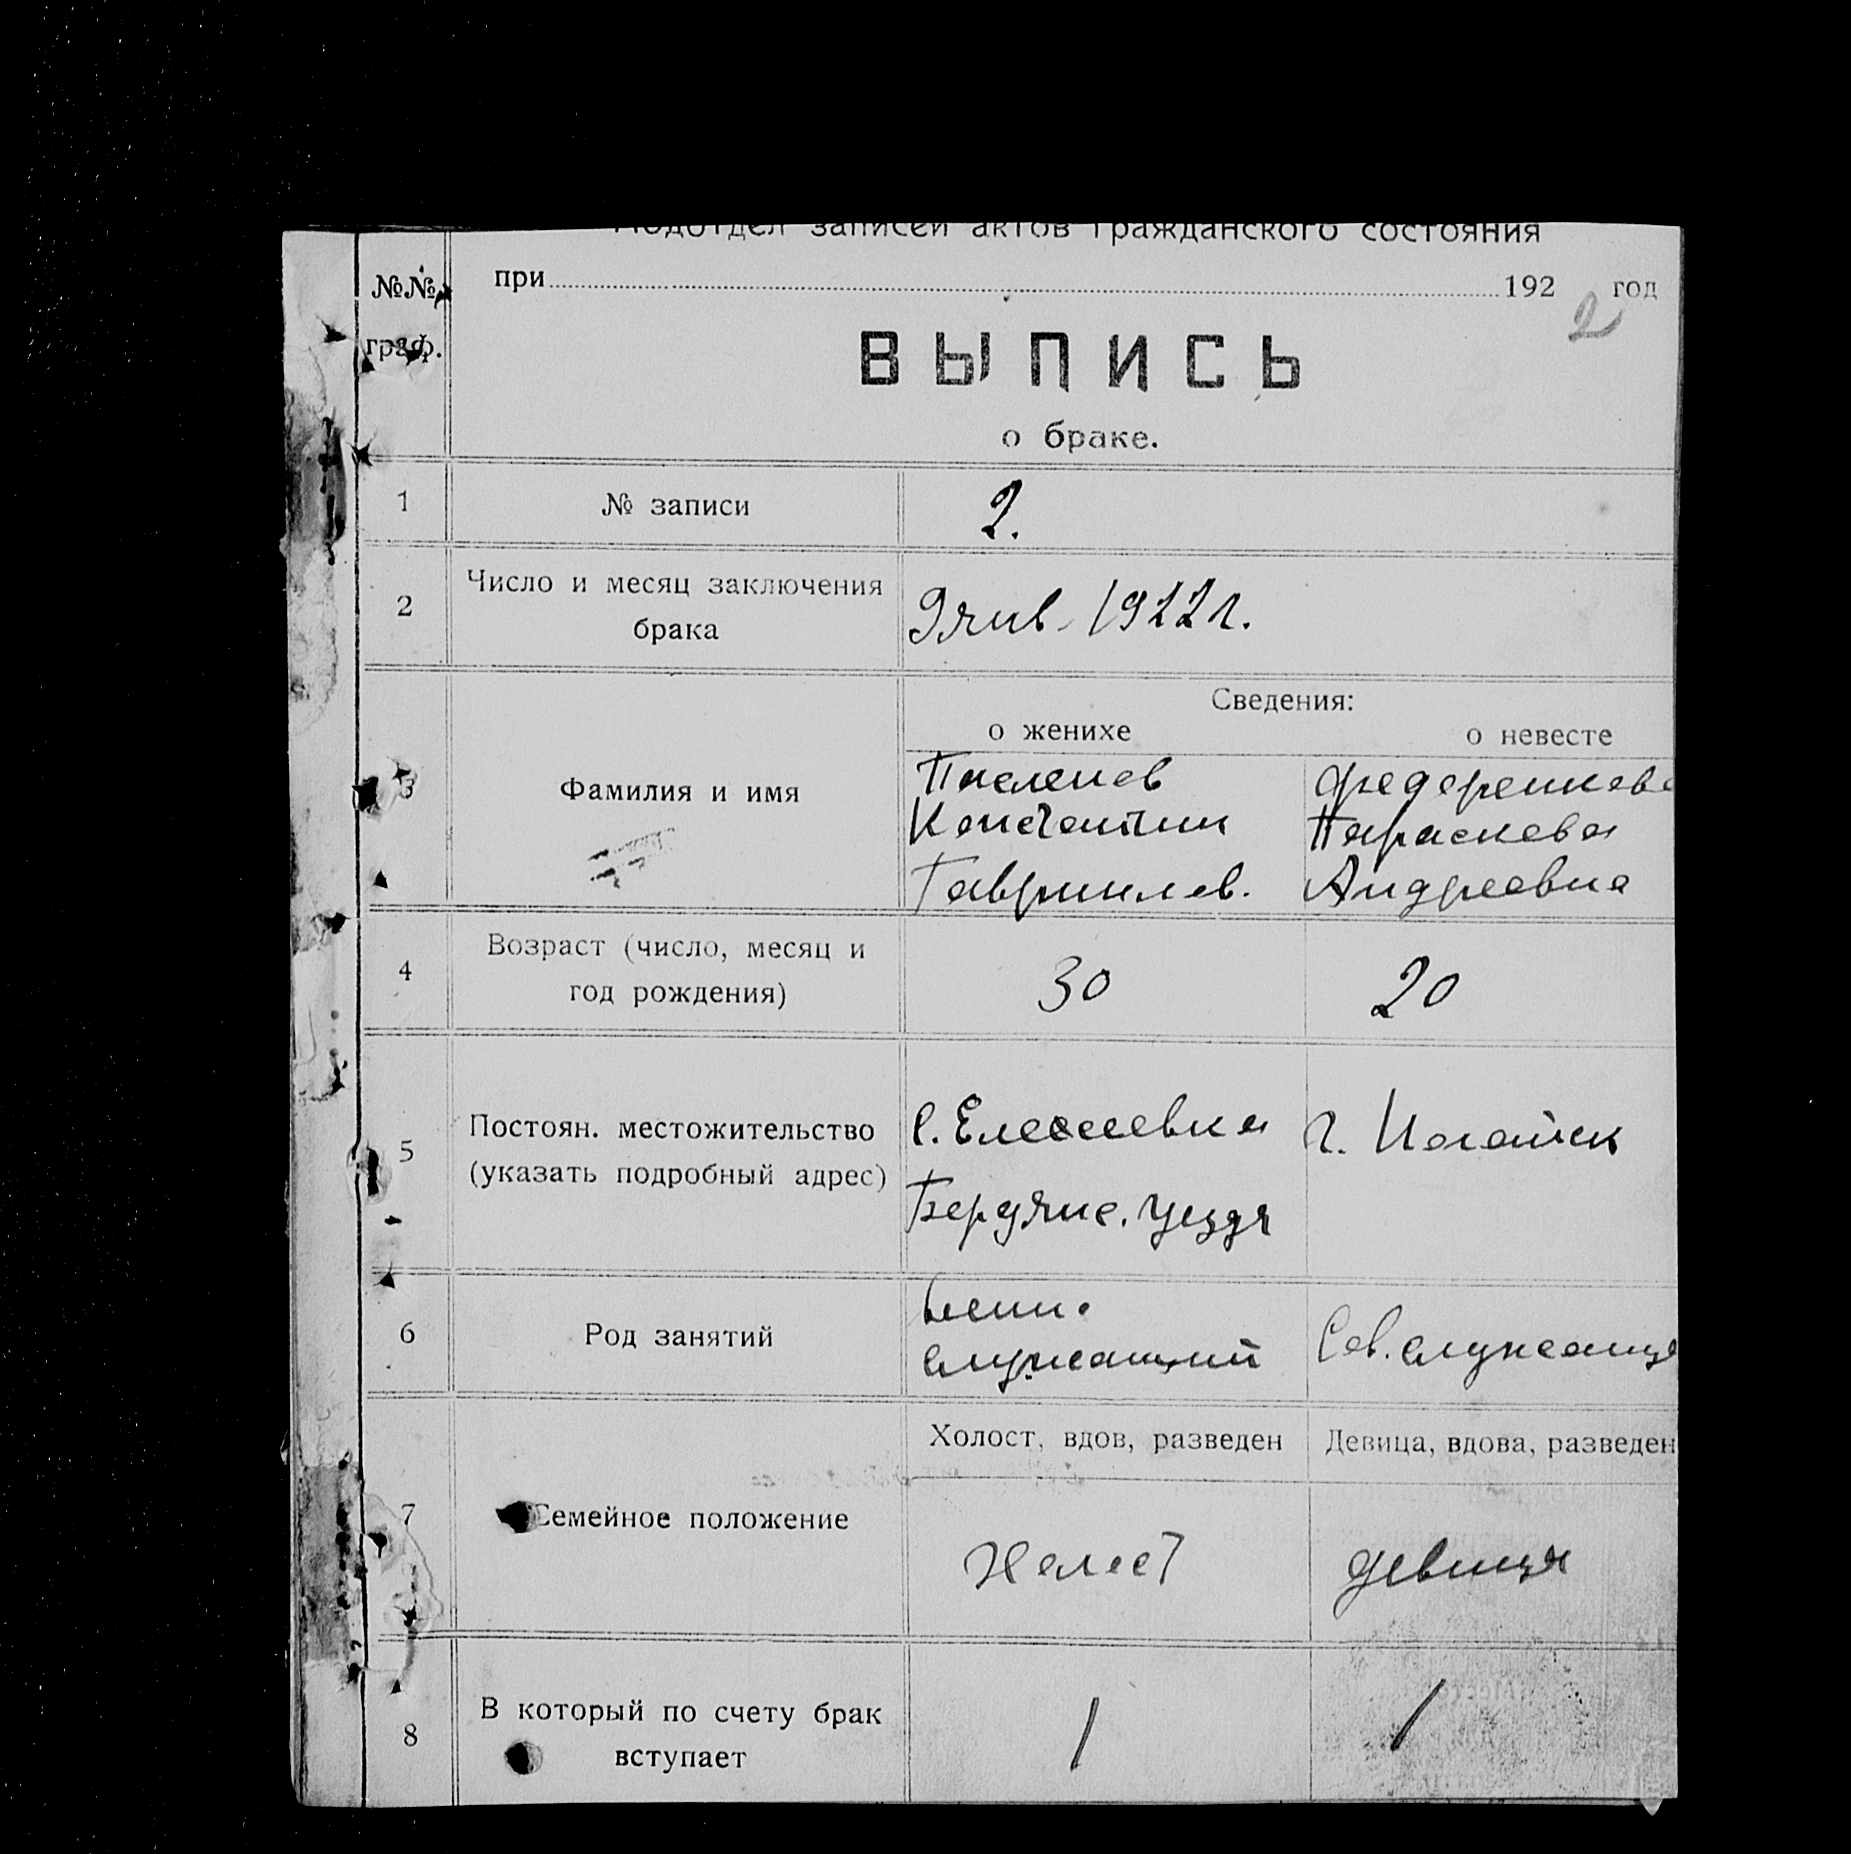 Подотдел записей актов гражданского состояния
№№ граф.
при 192 год
2
ВЫПИСЬ
о браке.
1 № записи 2.
2 Число и месяц заключения брака 9 янв. 1922 г.
Сведения:
о женихе о невесте
3 Фамилия и имя
Константин Параскева
Гавриилов. Андреевна
4 Возраст (число, месяц и год рождения) 30 20
5 Постоян. местожительство (указать подробный адрес)
с. Елесеевка г. Ногайск
Бердянс. уезда
6 Род занятий
служащий Сов. служаща
Холост, вдов, разведен Девица, вдова, разведен
7 Семейное положение
Холост девица
8 В который по счету брак вступает 1 1